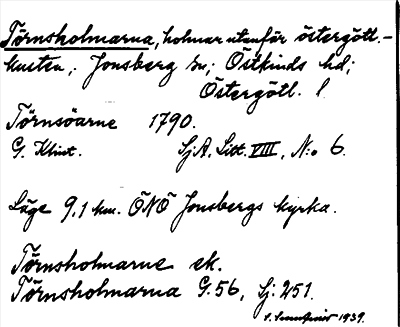 Törnsholmarna, holmar utanför östergötl.-
kusten; Jonsberg sn; Östkinds hd;
Östergötl. l.
Törnsöarne 1790.
G. Klint. SjA. Litt. VIII, N:o 6.
Läge 9,1 km. ÖNÖ Jonsbergs kyrka.
Törnsholmarne ek.
Törnsholmarna G. 56, Sj: 251.
1939.